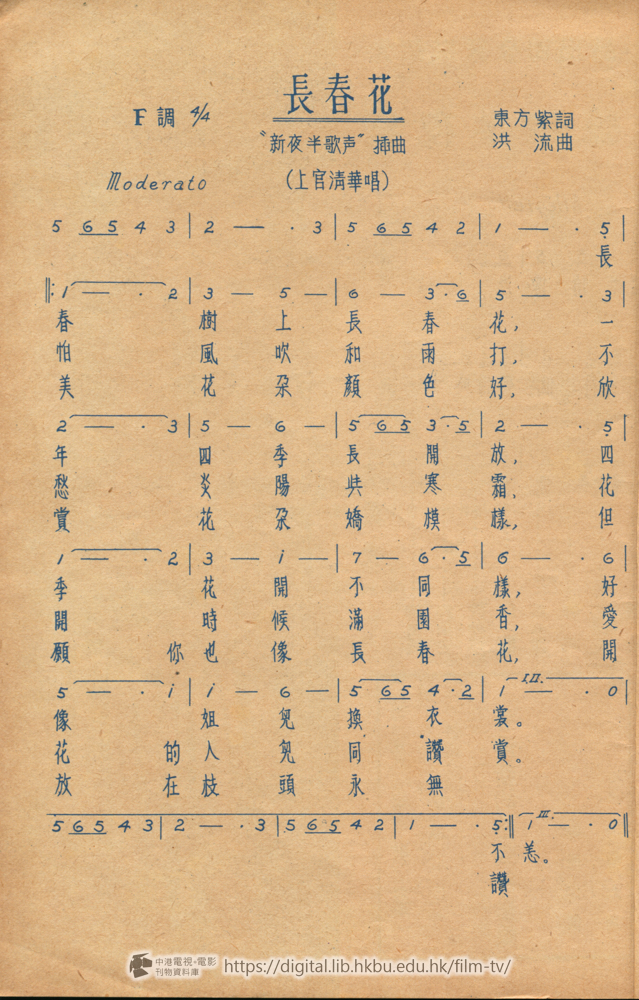 長春花
F 調 4/4
東方紫詞
"新夜半歌声" 插曲
洪 流曲
Moderato
(上官清華唱)
5 6 5 4 3 | 2 — · 3 | 5 6 5 4 2 | 1 — · 5 |
長
‖: 1 — · 2 | 3 — 5 — | 6 — 3 · 6 | 5 — · 3 |
春 樹 上 長 春 花, 一
怕 風 吹 和 雨 打, 不
美 花 朵 顏 色 好, 欣
2 — · 3 | 5 — 6 — | 5 6 5 3 · 5 | 2 — · 5 |
年 四 季 長 開 放, 四
愁 炎 陽 與 寒 霜, 花
賞 花 朵 嬌 模 樣, 但
1 — · 2 | 3 — i — | 7 — 6 · 5 | 6 — · 6 |
季 花 開 不 同 樣, 好
開 時 候 滿 園 香, 愛
願 你 也 像 長 春 花, 開
5 — · i | i — 6 — | 5 6 5 4 · 2 | I.II. 1 — · 0 |
像 姐 兒 換 衣 裳。
花 的 人 兒 同 讚 賞。
放 在 枝 頭 永 無
5 6 5 4 3 | 2 — · 3 | 5 6 5 4 2 | 1 — · 5 :‖ III. 1 — · 0 |
不 恙。
讚
中港電視·電影
刊物資料庫
https://digital.lib.hkbu.edu.hk/film-tv/